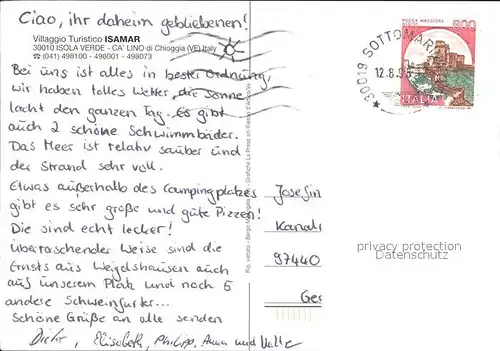 Ciao, ihr daheim gebliebenen!
Villaggio Turistico ISAMAR
30010 ISOLA VERDE - CA' LINO di Chioggia (VE) Italy
☎ (041) 498100 - 498001 - 498073
Bei uns ist alles in bester Ordnung,
wir haben tolles Wetter, die Sonne
lacht den ganzen Tag. Es gibt
auch 2 schöne Schwimmbäder.
Das Meer ist relativ sauber und
der Strand sehr voll.
Etwas außerhalb des Campingplatzes
gibt es sehr große und gute Pizzen!
Die sind echt lecker!
Überraschender Weise sind die
Ernsts aus Weigolshausen auch
auf unserem Platz und noch 5
andere Schweinfurter...
Schöne Grüße an alle senden
Elisabeth, Philipp, Anna und
30019 SOTTOMAR
12.8.9
ROCCA MAGGIORE
ASSISI
800
ITALIA
Josefin
Kanal
97440
Ge
privacy protection
Datenschutz